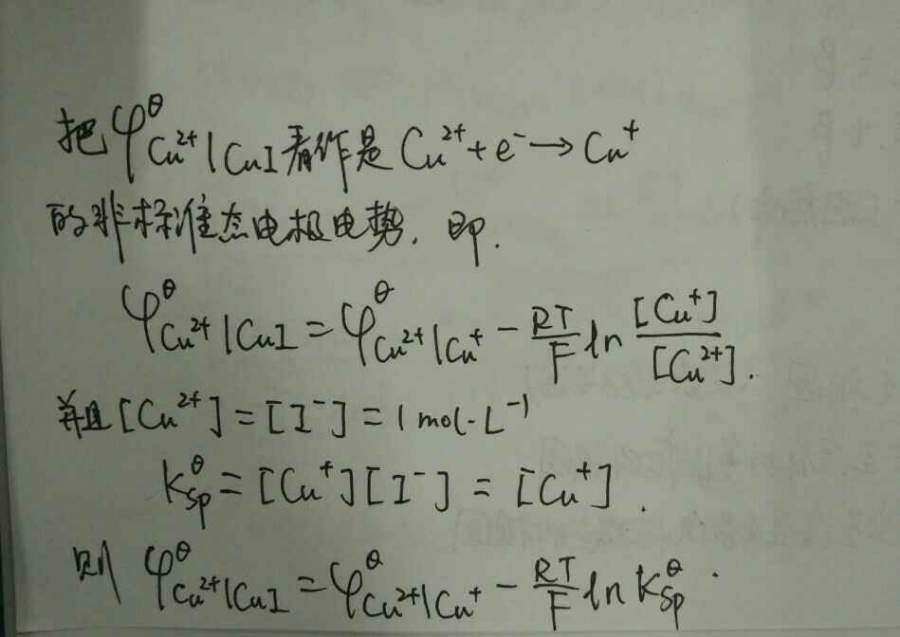 把φ^θ_{Cu²⁺|CuI}看作是Cu²⁺+e⁻→Cu⁺
的非标准态电极电势，即.
φ^θ_{Cu²⁺|CuI}=φ^θ_{Cu²⁺|Cu⁺}-\frac{RT}{F}ln\frac{[Cu⁺]}{[Cu²⁺]}.
并且[Cu²⁺]=[I⁻]=1mol·L⁻¹
K^θ_{sp}=[Cu⁺][I⁻]=[Cu⁺].
则φ^θ_{Cu²⁺|CuI}=φ^θ_{Cu²⁺|Cu⁺}-\frac{RT}{F}lnK^θ_{sp}.